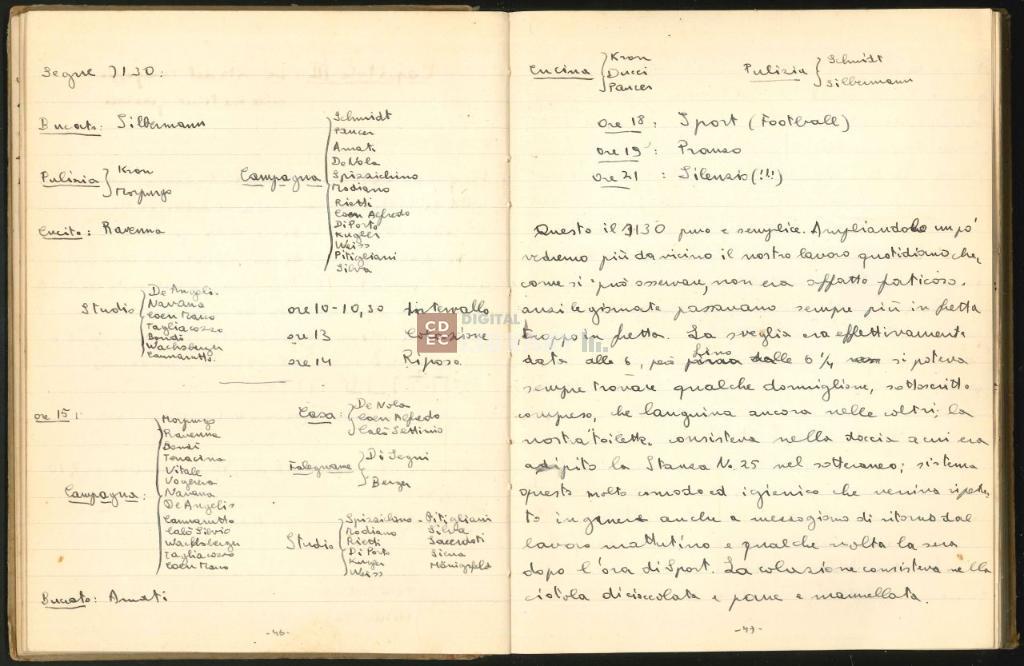 Segue 7130:
Bucato: Silbermann
Pulizia Kron
Morpurgo
Cucito: Ravenna
Campagna
Schmidt
Pancer
Amati
De Nola
Spizzichino
Modiano
Rietti
Coen Alfredo
Di Porto
Kugler
Weiss
Pitigliani
Silva
Studio
De Angelis
Navarra
Coen Marco
Tagliacozzo
Bondi
Wachsberger
Cammarotto
ore 10-10,30 Intervallo
ore 13 Colazione
ore 14 Riposo
ore 15:
Campagna:
Morpurgo
Ravenna
Bondi
Terracina
Vitale
Vogerera
Navarra
De Angelis
Cammarotto
Calò Silvio
Wachsberger
Tagliacozzo
Coen Marco
Casa:
De Nola
Coen Alfredo
Calò Settimio
Falegname
Di Segni
Berger
Studio
Spizzichino - Pitigliani
Modiano Silva
Rietti Sacerdoti
Di Porto Siena
Kugler Mönigsfeld
Weiss
Bucato: Amati
-46-
Cucina
Kron
Ducci
Pancer
Pulizia
Schmidt
Silbermann
ore 18: Sport (Football)
ore 19: Pranzo
ore 21: Silenzio (!!!)
Questo il 7130 puro e semplice. Ampliandolo un pò
vedremo più da vicino il nostro lavoro quotidiano che,
come si può osservare, non era affatto faticoso.
anzi le giornate passavano sempre più in fretta
troppo in fretta. La sveglia era effettivamente
data alle 6, però fino alle 6 1/4 si poteva
sempre trovare qualche dormiglione, sottoscritto
compreso, che languiva ancora nelle coltri; la
nostra "toilette" consisteva nella doccia a cui era
adipito la Stanza No. 25 nel sotteraneo; sistema
questo molto comodo ed igienico che veniva ripetu-
to in genere anche a mezzogiorno di ritorno dal
lavoro mattutino e qualche volta la sera
dopo l'ora di Sport. La colazione consisteva nella
ciotola di cioccolata e pane e marmellata.
-47-
CD
EC
DIGITAL